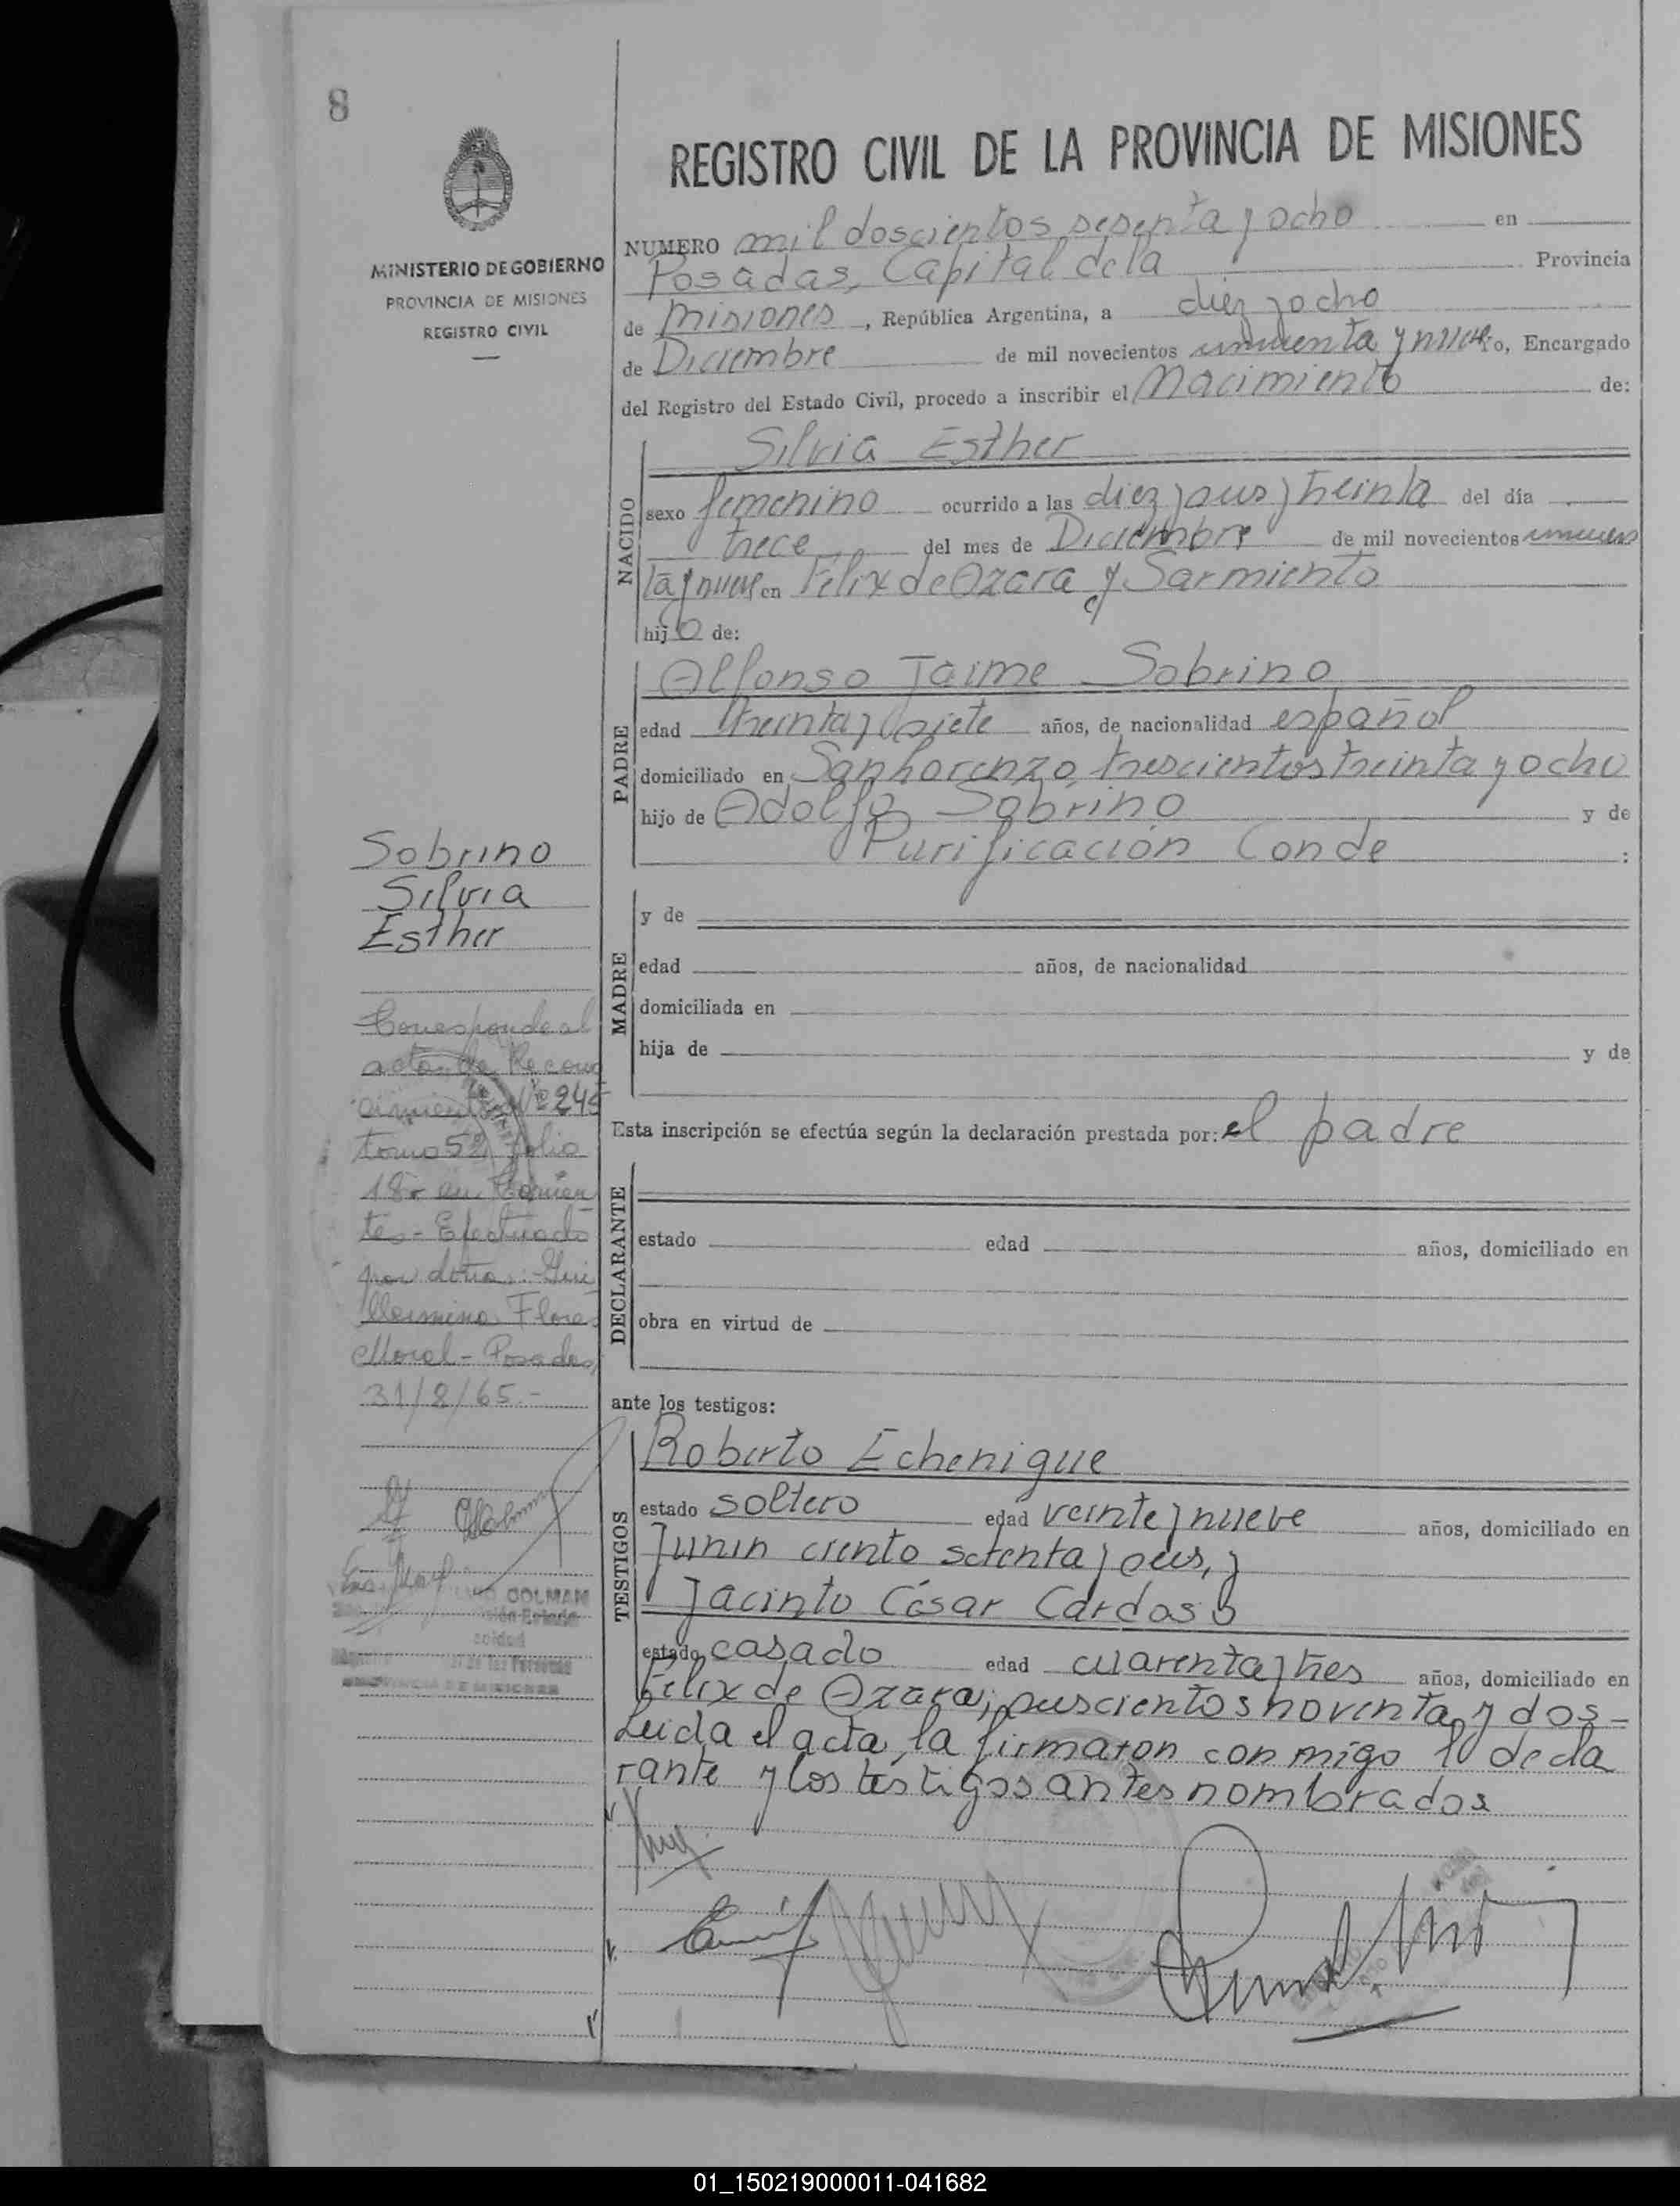 8
REGISTRO CIVIL DE LA PROVINCIA DE MISIONES
MINISTERIO DE GOBIERNO
PROVINCIA DE MISIONES
REGISTRO CIVIL
NUMERO mil doscientos sesenta y ocho en
Posadas, Capital de la Provincia
de Misiones, República Argentina, a diez y ocho
de Diciembre de mil novecientos cincuenta y nueve, Encargado
del Registro del Estado Civil, procedo a inscribir el Nacimiento de:
NACIDO
Silvia Esther
sexo femenino ocurrido a las diez y seis y treinta del día
trece del mes de Diciembre de mil novecientos cincuen
ta y nueve en Félix de Azara y Sarmiento
hija de:
PADRE
Alfonso Jaime Sobrino
edad treinta y siete años, de nacionalidad español
domiciliado en San Lorenzo trescientos treinta y ocho
hijo de Adolfo Sobrino y de
Purificación Conde :
Sobrino
Silvia
Esther
MADRE
y de
edad años, de nacionalidad
domiciliada en
hija de y de
Corresponde al
acta de Recono
cimiento Nº 245
tomo 52 folio
18 en Corrien
tes - Efectuado
por doña: Gui
llermina Flores
Moral - Posadas,
31/8/65.-
Esta inscripción se efectúa según la declaración prestada por: el padre
DECLARANTE
estado edad años, domiciliado en
obra en virtud de
ante los testigos:
TESTIGOS
Roberto Echenique
estado soltero edad veinte y nueve años, domiciliado en
Junín ciento setenta y seis, y
Jacinto César Cardoso
estado casado edad cuarenta y tres años, domiciliado en
Félix de Azara, seiscientos noventa y dos -
Leida el acta, la firmaron conmigo el decla
rante y los testigos antes nombrados
COLMAN
01_150219000011-041682